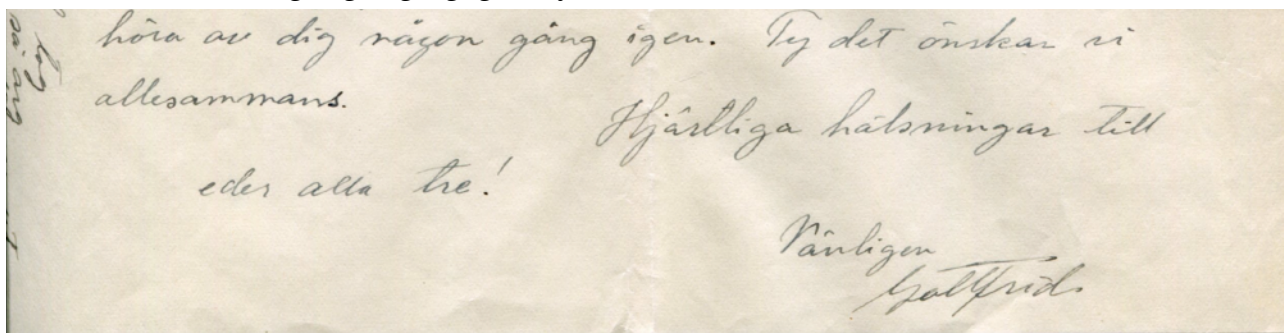 höra av dig någon gång igen. Ty det önskar vi
allesammans.
Hjärtliga hälsningar till
eder alla tre!
Vänligen
Gottfrid